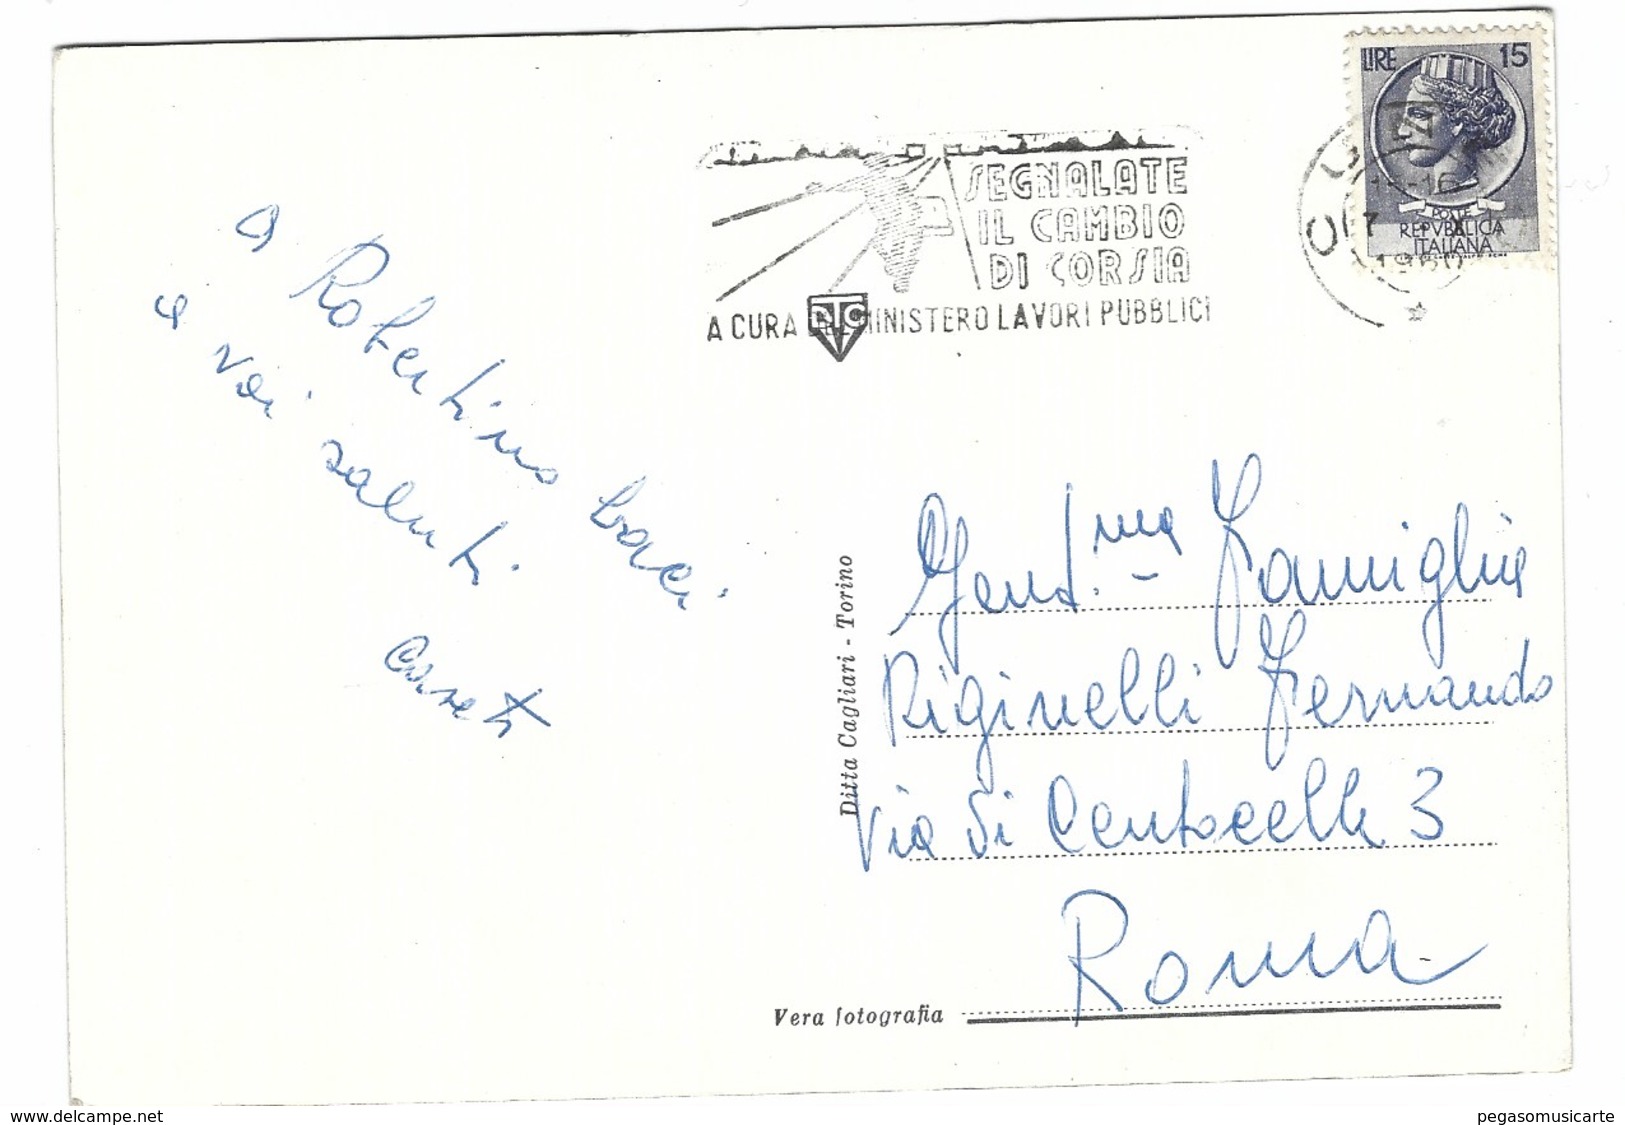 LIRE 15
POSTE
REPVBBLICA
ITALIANA
1960
SEGNALATE
IL CAMBIO
DI CORSIA
A CURA DEL MINISTERO LAVORI PUBBLICI
a Robertino baci
e voi saluti
Ditta Cagliari - Torino
Gent.ma Famiglia
Riginelli Fernando
Via di Centocelle 3
Roma
Vera fotografia
www.delcampe.net
pegasomusicarte